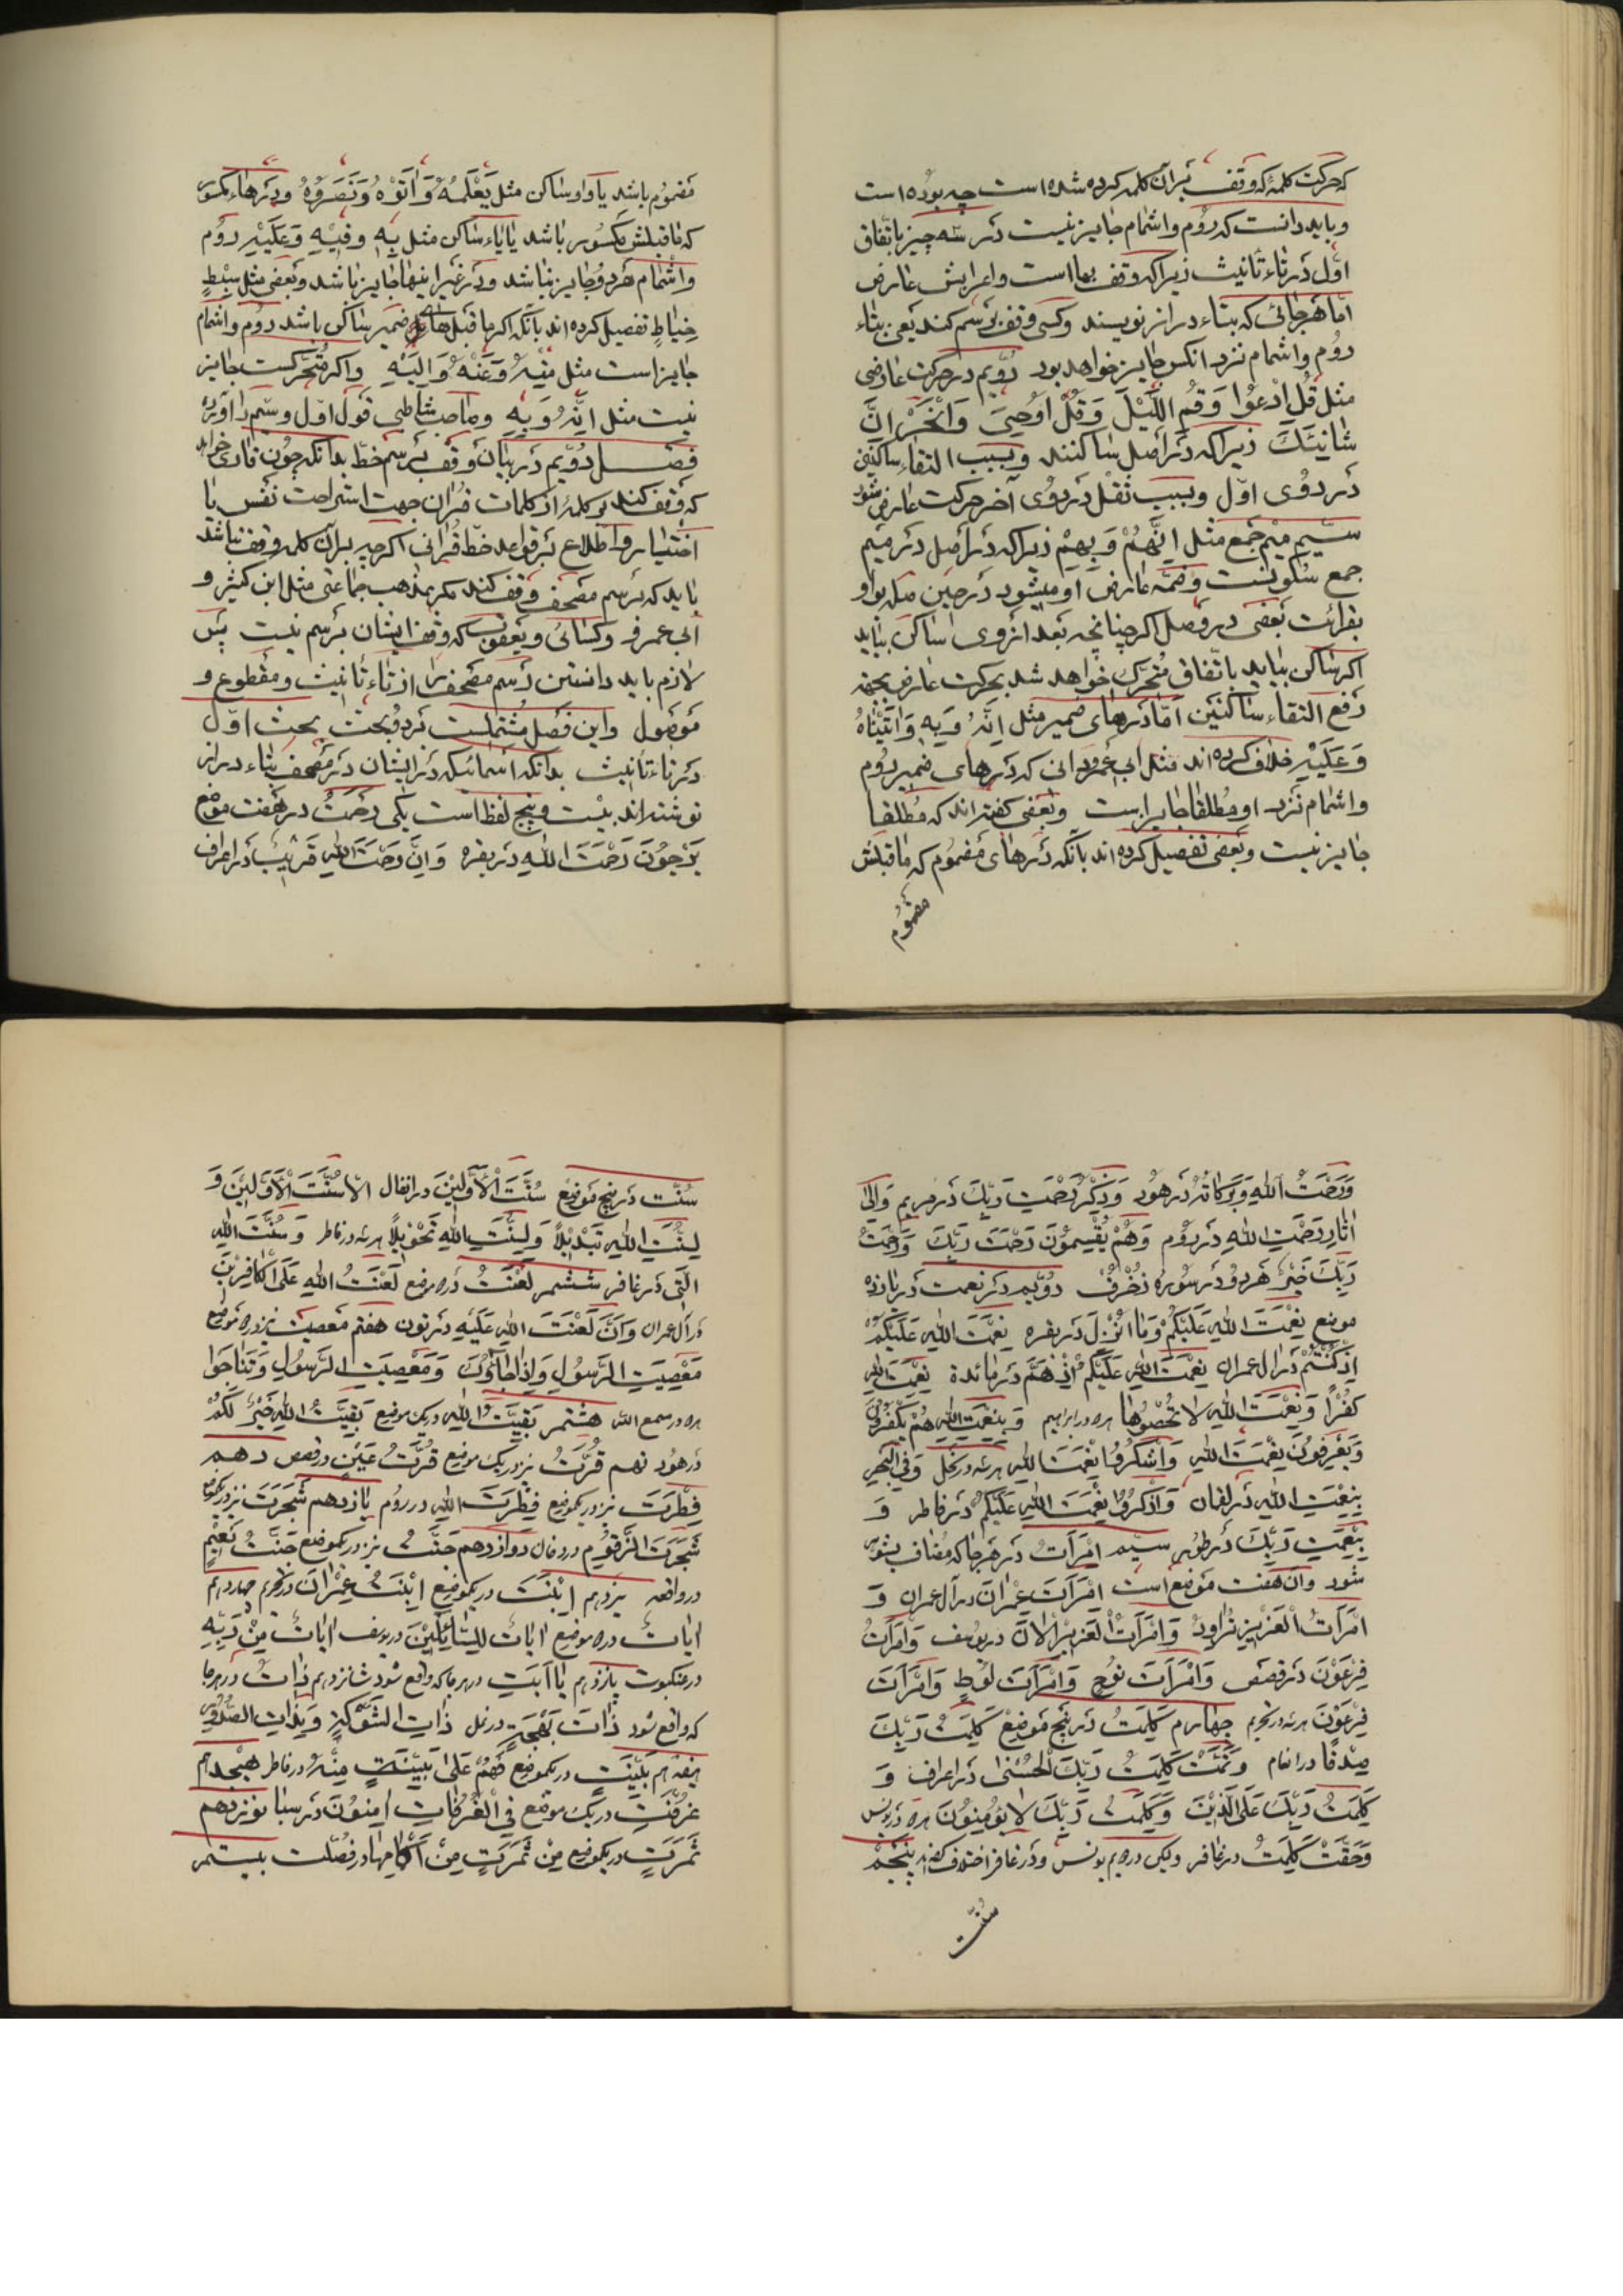 که حرکت کلمهٔ که وقف بر آن کلمه کرده شده است چه بوده است
و باید دانست که رَوْم و اشمام جایز نیست در سه چیز باتّفاق
اوّل در تاء تأنیث زیرا که وقف بها است و اعرابش عارض
امّا هر جائی که بتاء دراز نویسند و کسی وقف برسم کند یعنی بتاء
رَوْم و اشمام نزد آنکس جایز خواهد بود دوّیم در حرکت عارضی
مثل قُلِ ادْعُوا وَ قُمِ اللَّیْلَ وَ قُلْ اُوْحِیَ وَ انْحَرْ اِنَّ
شانِئَكَ زیرا که در اصل ساکنند و بسبب التقاء ساکنین
در رَوْی اوّل و بسبب نقل در رَوْی آخر حرکت عارض شود
سیّم میم جمع مثل اِنَّهُمْ وَ بِهِمْ زیرا که در اصل در میم
جمع سکونست و ضمّه عارض او میشود در حین صله بواو
بقرائت بعضی در وصل اگر چنانچه بعد ازوی ساکن نیاید
اگر ساکن بیاید باتّفاق متحرّك خواهد شد بحرکت عارض بجهة
رفع التقاء ساکنین امّا در هاى ضمیر مثل اِنَّهُ وَ بِهِ وَ اتَیْناهُ
وَ عَلَیْهِ خلاف کرده اند مثل ابی عمرو دانی که در هاى ضمیر رَوْم
و اشمام نزد او مطلقا جایز است و بعضی گفته اند که مطلقا
جایز نیست و بعضی تفصیل کرده اند بآنکه در هاى مضموم که ماقبلش
مضموم
مضموم باشد یا واو ساکن مثل یَعْلَمُهُ وَ اٰتَوْهُ وَ نَصَرُوْهُ و در هاء مکسور
که ماقبلش مکسور باشد یا یاء ساکن مثل بِهِ وَ فِیْهِ وَ عَلَیْهِ رَوْم
و اشمام هردو جایز نباشد و در غیر اینها جایز باشد و بعضی مثل سِبْطِ
خیّاط تفصیل کرده اند بآنکه اگر ما قبل هاى ضمیر ساکن باشد رَوْم و اشمام
جایز است مثل مِنْهُ وَ عَنْهُ وَ اِلَیْهِ و اگر متحرّکست جایز
نیست مثل اِنَّهُ وَ بِهِ و صاحب شاطبی قول اوّل و سیّم را آورده
فصل دوّیم در بیان وقف برسم خطّ بدانکه چون قاری خواهد
که وقف کند بر کلمهٔ از کلمات قران جهت استراحت نفس یا
اختیار و اطّلاع بر قواعد خطّ قرانی اگر چه بر آن کلمه وقف نباشد
باید که برسم مصحف وقف کند مگر بمذهب جماعتی مثل ابن کثیر و
ابی عمرو و کسائی و یعقوب که وقف ایشان برسم نیست پس
لازم باید دانستن رسم مصحف را از تاء تانیث و مقطوع و
موصول و این فصل مشتملست بر دو بحث بحث اوّل
در تاء تأنیث بدانکه اسمائیکه در ایشان در مصحف بتاء دراز
نوشته اند بیست و پنج لفظ است یکی رَحْمَتُ در هفت موضع
یَرْجُونَ رَحْمَتَ اللهِ در بقره وَ اِنَّ رَحْمَتَ اللهِ قَرِیْبٌ در اعراف
وَ رَحْمَتُ اللهِ وَ بَرَکاتُهُ در هود وَ ذِکْرُ رَحْمَتِ رَبِّكَ در مریم وَ اِلٰی
اٰثارِ رَحْمَتِ اللهِ در روم وَ هُمْ یُقْسِمُوْنَ رَحْمَتَ رَبِّكَ وَ رَحْمَتُ
رَبِّكَ خَیْرٌ هردو در سوره زخرف دوّیم در نعمت در یازده
موضع نِعْمَتَ اللهِ عَلَیْکُمْ وَ مٰا اَنْزَلَ در بقره نِعْمَتَ اللهِ عَلَیْکُمْ
اِذْ کُنْتُمْ در ال عمران نِعْمَتَ اللهِ عَلَیْکُمْ اِذْ هَمَّ در مائدة نِعْمَتَ اللهِ
کُفْرًا وَ نِعْمَتَ اللهِ لا تُحْصُوْهٰا هر دو در ابراهیم وَ بِنِعْمَتِ اللهِ هُمْ یَکْفُرُوْنَ
وَ یَعْرِفُونَ نِعْمَتَ اللهِ وَ اشْکُرُوْا نِعْمَتَ اللهِ هر سه در نحل وَ فِی الْبَحْرِ
بِنِعْمَتِ اللهِ در لقمان وَ اذْکُرُوْا نِعْمَتَ اللهِ عَلَیْکُمْ در فاطر وَ
بِنِعْمَتِ رَبِّكَ در طور سیّم اِمْرَاَتُ در هر جا که مضاف بشوهر
شود و آن هفت موضع است اِمْرَاَتَ عِمْرٰانَ در آل عمران وَ
امْرَاَتُ الْعَزِیْزِ تُراوِدُ وَ امْرَاَتُ الْعَزِیْزِ الْاٰنَ در یوسف وَ امْرَاَتُ
فِرْعَوْنَ در قصص وَ امْرَاَتَ نُوْحٍ وَ امْرَاَتَ لُوْطٍ وَ امْرَاَتَ
فِرْعَوْنَ هر سه در تحریم چهارم کَلِمَتُ در پنج موضع کَلِمَتُ رَبِّكَ
صِدْقًا در انعام وَ تَمَّتْ کَلِمَتُ رَبِّكَ الْحُسْنٰی در اعراف وَ
کَلِمَتُ رَبِّكَ عَلَی الَّذِیْنَ وَ کَلِمَتُ رَبِّكَ لا یُؤْمِنُوْنَ هر دو در یونس
وَ حَقَّتْ کَلِمَتُ در غافر ولیکن در دویم یونس و در غافر اختلاف کرده اند پنجم
سُنّت
سُنّت در پنج موضع سُنَّتُ الْاَوَّلِیْنَ در انفال اِلّا سُنَّتَ الْاَوَّلِیْنَ وَ
لِسُنَّتِ اللهِ تَبْدِیْلًا وَ لِسُنَّتِ اللهِ تَحْوِیْلًا هر سه در فاطر وَ سُنَّتَ اللهِ
الَّتی در غافر ششم لَعْنَتُ در دو موضع لَعْنَتُ اللهِ عَلَی الْکافِرِیْنَ
در آل عمران وَ اَنَّ لَعْنَتَ اللهِ عَلَیْهِ در نون هفتم معصیت نیز در دو موضع
مَعْصِیَتِ الرَّسُولِ وَ اِذا جٰاؤُكَ وَ مَعْصِیَتِ الرَّسُولِ وَ تَنٰاجَوْا
هر دو در سمع الله هشتم بَقِیَّتُ اللهِ در یك موضع بَقِیَّتُ اللهِ خَیْرٌ لَکُمْ
در هود نهم قُرَّتُ نیز در یك موضع قُرَّتُ عَیْنٍ در قصص دهم
فِطْرَتَ نیز در یکموضع فِطْرَتَ اللهِ در روم یازدهم شَجَرَتَ نیز در یکموضع
شَجَرَتَ الزَّقُّوْمِ در دخان دوازدهم جَنَّتُ نیز در یکموضع جَنَّتُ نَعِیْمٍ
در واقعه سیزدهم اِبْنَتَ در یکموضع اِبْنَتَ عِمْرٰانَ در تحریم چهاردهم
اٰیات در دو موضع اٰیاتٌ لِلسّٰائِلِیْنَ در یوسف اٰیاتٌ مِنْ رَبِّهِ
در عنکبوت پانزدهم یٰا اَبَتِ در هر جا که واقع شود شانزدهم ذٰاتُ در هر جا
که واقع شود ذٰاتَ بَهْجَةٍ در نمل ذٰاتِ الشَّوْکَةِ وَ بِذٰاتِ الصُّدُوْرِ
هفدهم بَیِّنَتٍ در یکموضع فَهُمْ عَلٰی بَیِّنَتٍ مِنْهُ در فاطر هیجدهم
غُرُفٰتِ در یك موضع فِی الْغُرُفٰاتِ اٰمِنُوْنَ در سبا نوزدهم
ثَمَرَتٍ در یکموضع مِنْ ثَمَرَتٍ مِنْ اَکْمٰامِهٰا در فصّلت بیستم